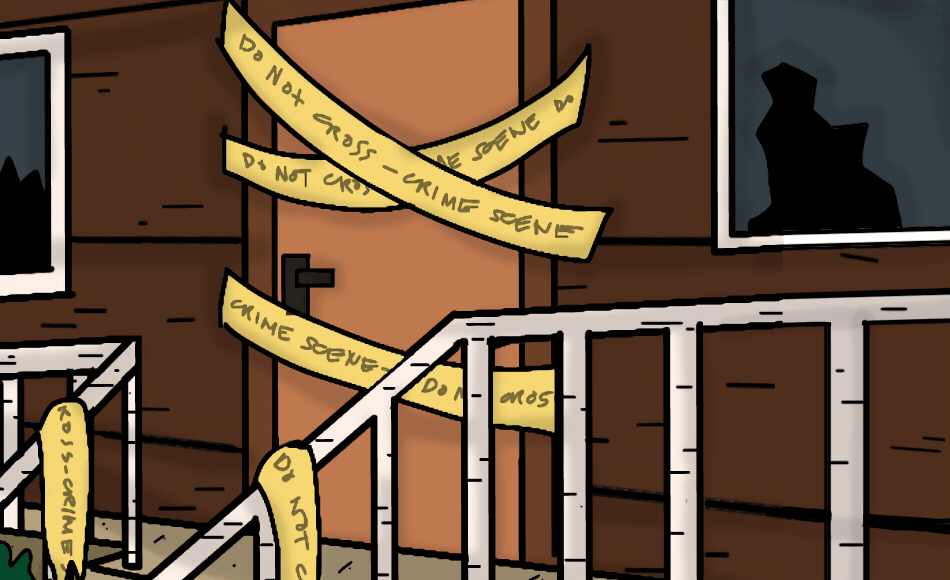 DO NOT CROSS - CRIME SCENE
DO NOT CROS
ME SCENE DO
CRIME SCENE- DO N CROS
ROSS-CRIME
DO NOT C